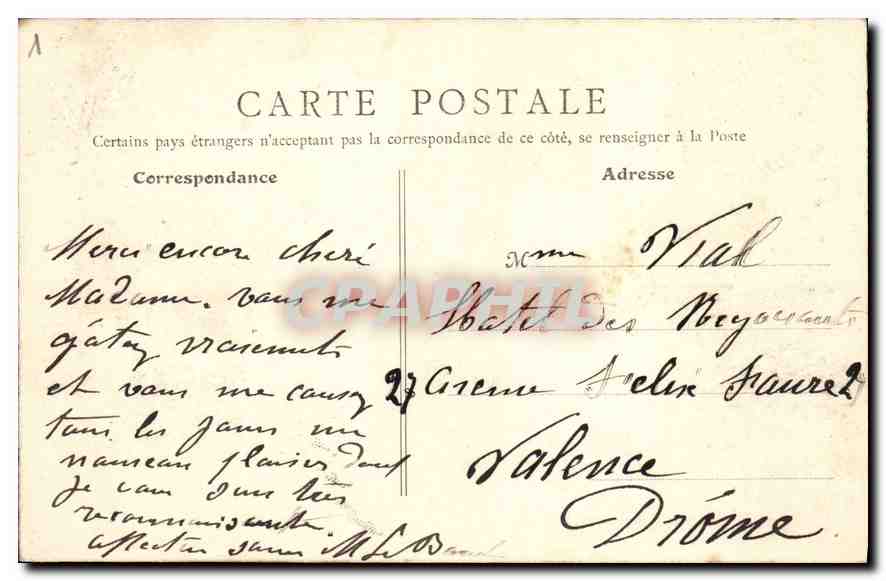 1
CARTE POSTALE
Certains pays étrangers n'acceptant pas la correspondance de ce côté, se renseigner à la Poste
Correspondance
Merci encore chere
Madame. vous me
gâtez vraiment
et vous me causez
tous les jours un
nouveau plaisir dont
je vous suis très
reconnaissante.
M Le
Adresse
Mme Vial
Hotel des Negociants
27 avenue Felix Faure 27
Valence
Drôme
CPAPHIL